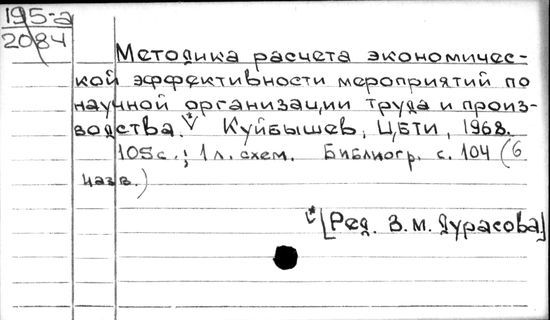 195-а
2084
Методика расчета экономичес-
кой эффективности мероприятий по
научной организации труда и произ-
водства.* Куйбышев, ЦБТИ, 1968.
105с.; 1 л. схем. Библиогр. с. 104 (6
назв.)
*[Ред. В.М. Дурасова]